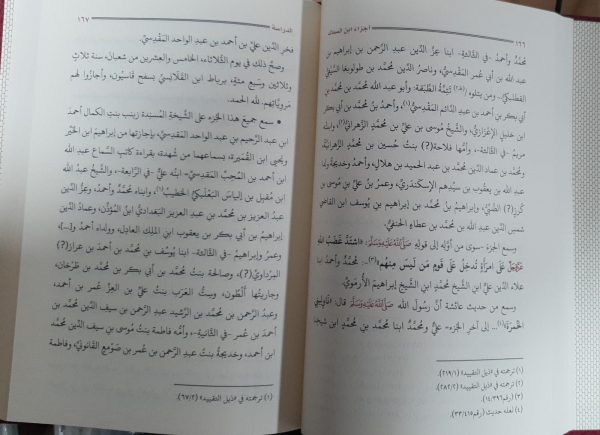 ١٦٦
أجزاء ابن السماك
محمَّدٌ وأحمدُ -في الثالثةِ- ابنا عزِّ الدِّين عبد الرَّحمن بن إبراهيم بن
عبد الله بن أبي عُمر المَقدِسِيِّ، وناصرُ الدِّين محمد بن طولوبغا السَّيْفِيُّ
ومن يتلوه: تَتِمَّةُ الطَّبَقة: وأبو عبد الله محمَّد بن محمَّد بن
أبي بكر بن أحمد بن عبد الدَّائم المَقْدِسيُّ(١)، وأحمدُ بنُ محمَّد بن أبي بكر
ابن خليلٍ الإعْزَازيُّ، والشَّيخُ موسى بن عليِّ بن محمَّدٍ الزَّهرانيُّ(٢)، وابنتُه
مريمُ -في الثَّالثة-، وأمُّها فلاحة(؟) بنتُ حُسين بن محمَّدٍ الزَّهرانيَّة،
محمَّد بن عماد الدِّين محمد بن عبد الحميد بن هلالٍ، وأحمدُ وخديجةُ ابنا
عبد الله بن يعقوب بن سيِّدِهم الإسكندريِّ، وعمرُ بنُ عليِّ بن مُوسى بن
كُرز(؟) الصَّبِيُّ، وإبراهيمُ بنُ محمَّد بن إبراهيم بنِ يُوسف ابن القاضي
شمس الدِّين عبد الله بن محمَّد بن عطاءٍ الحنفيُّ.
وسمع الجزءَ -سوى من أوَّله إلى قولهِ ﷺ: «اشتدَّ غَضَبُ اللهِ
عَزَّوَجَلَّ عَلَى امْرَأَةٍ تُدخِلُ عَلَى قَومٍ مَن لَيسَ مِنهُم»(٣)...: محمَّدٌ وأحمدُ ابنا
علاء الدِّين عليِّ ابنِ الشَّيخ محمَّدِ ابنِ الشَّيخ إبراهيمَ الأُرمَويِّ.
وسمع من حديثِ عائشةَ أنَّ رسولَ الله ﷺ قال: «ناوِلِيني
الخُمرَةَ»(٤)... إلى آخر الجزء: عليٌّ ومُحمَّدٌ ابنا محمَّد بن محمَّدِ ابن
(١) ترجمته في «ذيل التقييد» (٢١٩/١).
(٢) ترجمته في «ذيل التقييد» (٢٨٢/٢).
(٣) (رقم ١٤/٣٩٦).
(٤) لعله حديث (رقم ٣٣/٤١٥).
الدراسة
١٦٧
فخرِ الدِّين عليِّ بن أحمد بن عبد الواحد المَقدِسيِّ.
وصحَّ ذلك في يوم الثُّلاثاء، الخامسِ والعِشرين من شعبانَ، سنةَ ثلاثٍ
وثلاثين وسَبعِ مئةٍ، برباط ابن القَلانِسيِّ بسفح قاسيُون، وأجازُوا لهم
مَرويَّاتِهم، لله الحمد.
• سمع جميعَ هذا الجُزءِ على الشَّيخةِ المُسنِدة زينب بنتِ الكمال أحمدَ
ابن عبد الرَّحيم بن عبد الواحد المَقدِسيِّ، بإجازتِها من إبراهيمَ ابنِ الخَيِّر
ويحيى ابنِ القُمَيرة، بسماعهما من شُهدة، بقراءةِ كاتبِ السَّماع عبدِ الله
ابن أحمد بن المُحِبِّ المَقدِسيِّ: ابنُه عليٌّ -في الرَّابعة-، والشَّيخُ عبدُ الله
ابن مُقبِل بن إلياسَ البَعْلَبَكِّيُّ الخطيبُ(١)، وابناه محمَّدٌ وأحمدُ، وعزُّ الدِّين
عبدُ العزيز بن محمَّد بن عبد العزيز البغداديُّ ابنُ المُؤذِّن، وعمادُ الدِّين
إبراهيمُ بن أبي بكر بن يعقوب ابنِ المَلِكِ العادِل، وولداه أحمدُ و[...]،
وعمرُ وإبراهيمُ -في الثَّالثة- ابنا يُوسُف بن محمَّد بن أحمدَ بن عراز(؟)
المِردَاوِيِّ(؟)، وصالحةُ بنتُ محمَّد بن أبي بكر بن محمَّد بن طَرخان،
وجاريتُها أَلطُون، وستُّ العَرَب بنتُ عليِّ بن العِزِّ عُمر بن أحمد،
وعبدُ الرَّحمن بن محمَّد بن الرَّشيد عبد الرَّحمن بن سيف الدِّين محمَّد بن
أحمدَ بن عُمر -في الثَّانية-، وأمُّه فاطمةُ بنتُ مُوسى بن سيف الدِّين محمَّد
ابن أحمد، وخديجةُ بنتُ عبد الرَّحمن بن عُمر بن صَوْمَعٍ القَانُونيِّ، وفاطمة
(١) ترجمته في «ذيل التقييد» (٦٧/٢).